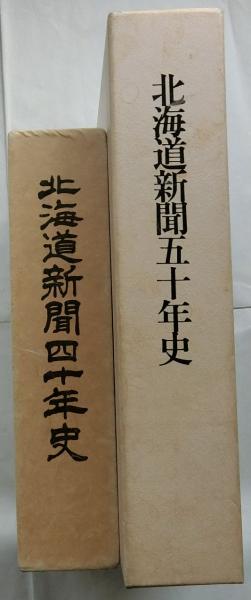 北海道新聞四十年史
北海道新聞五十年史